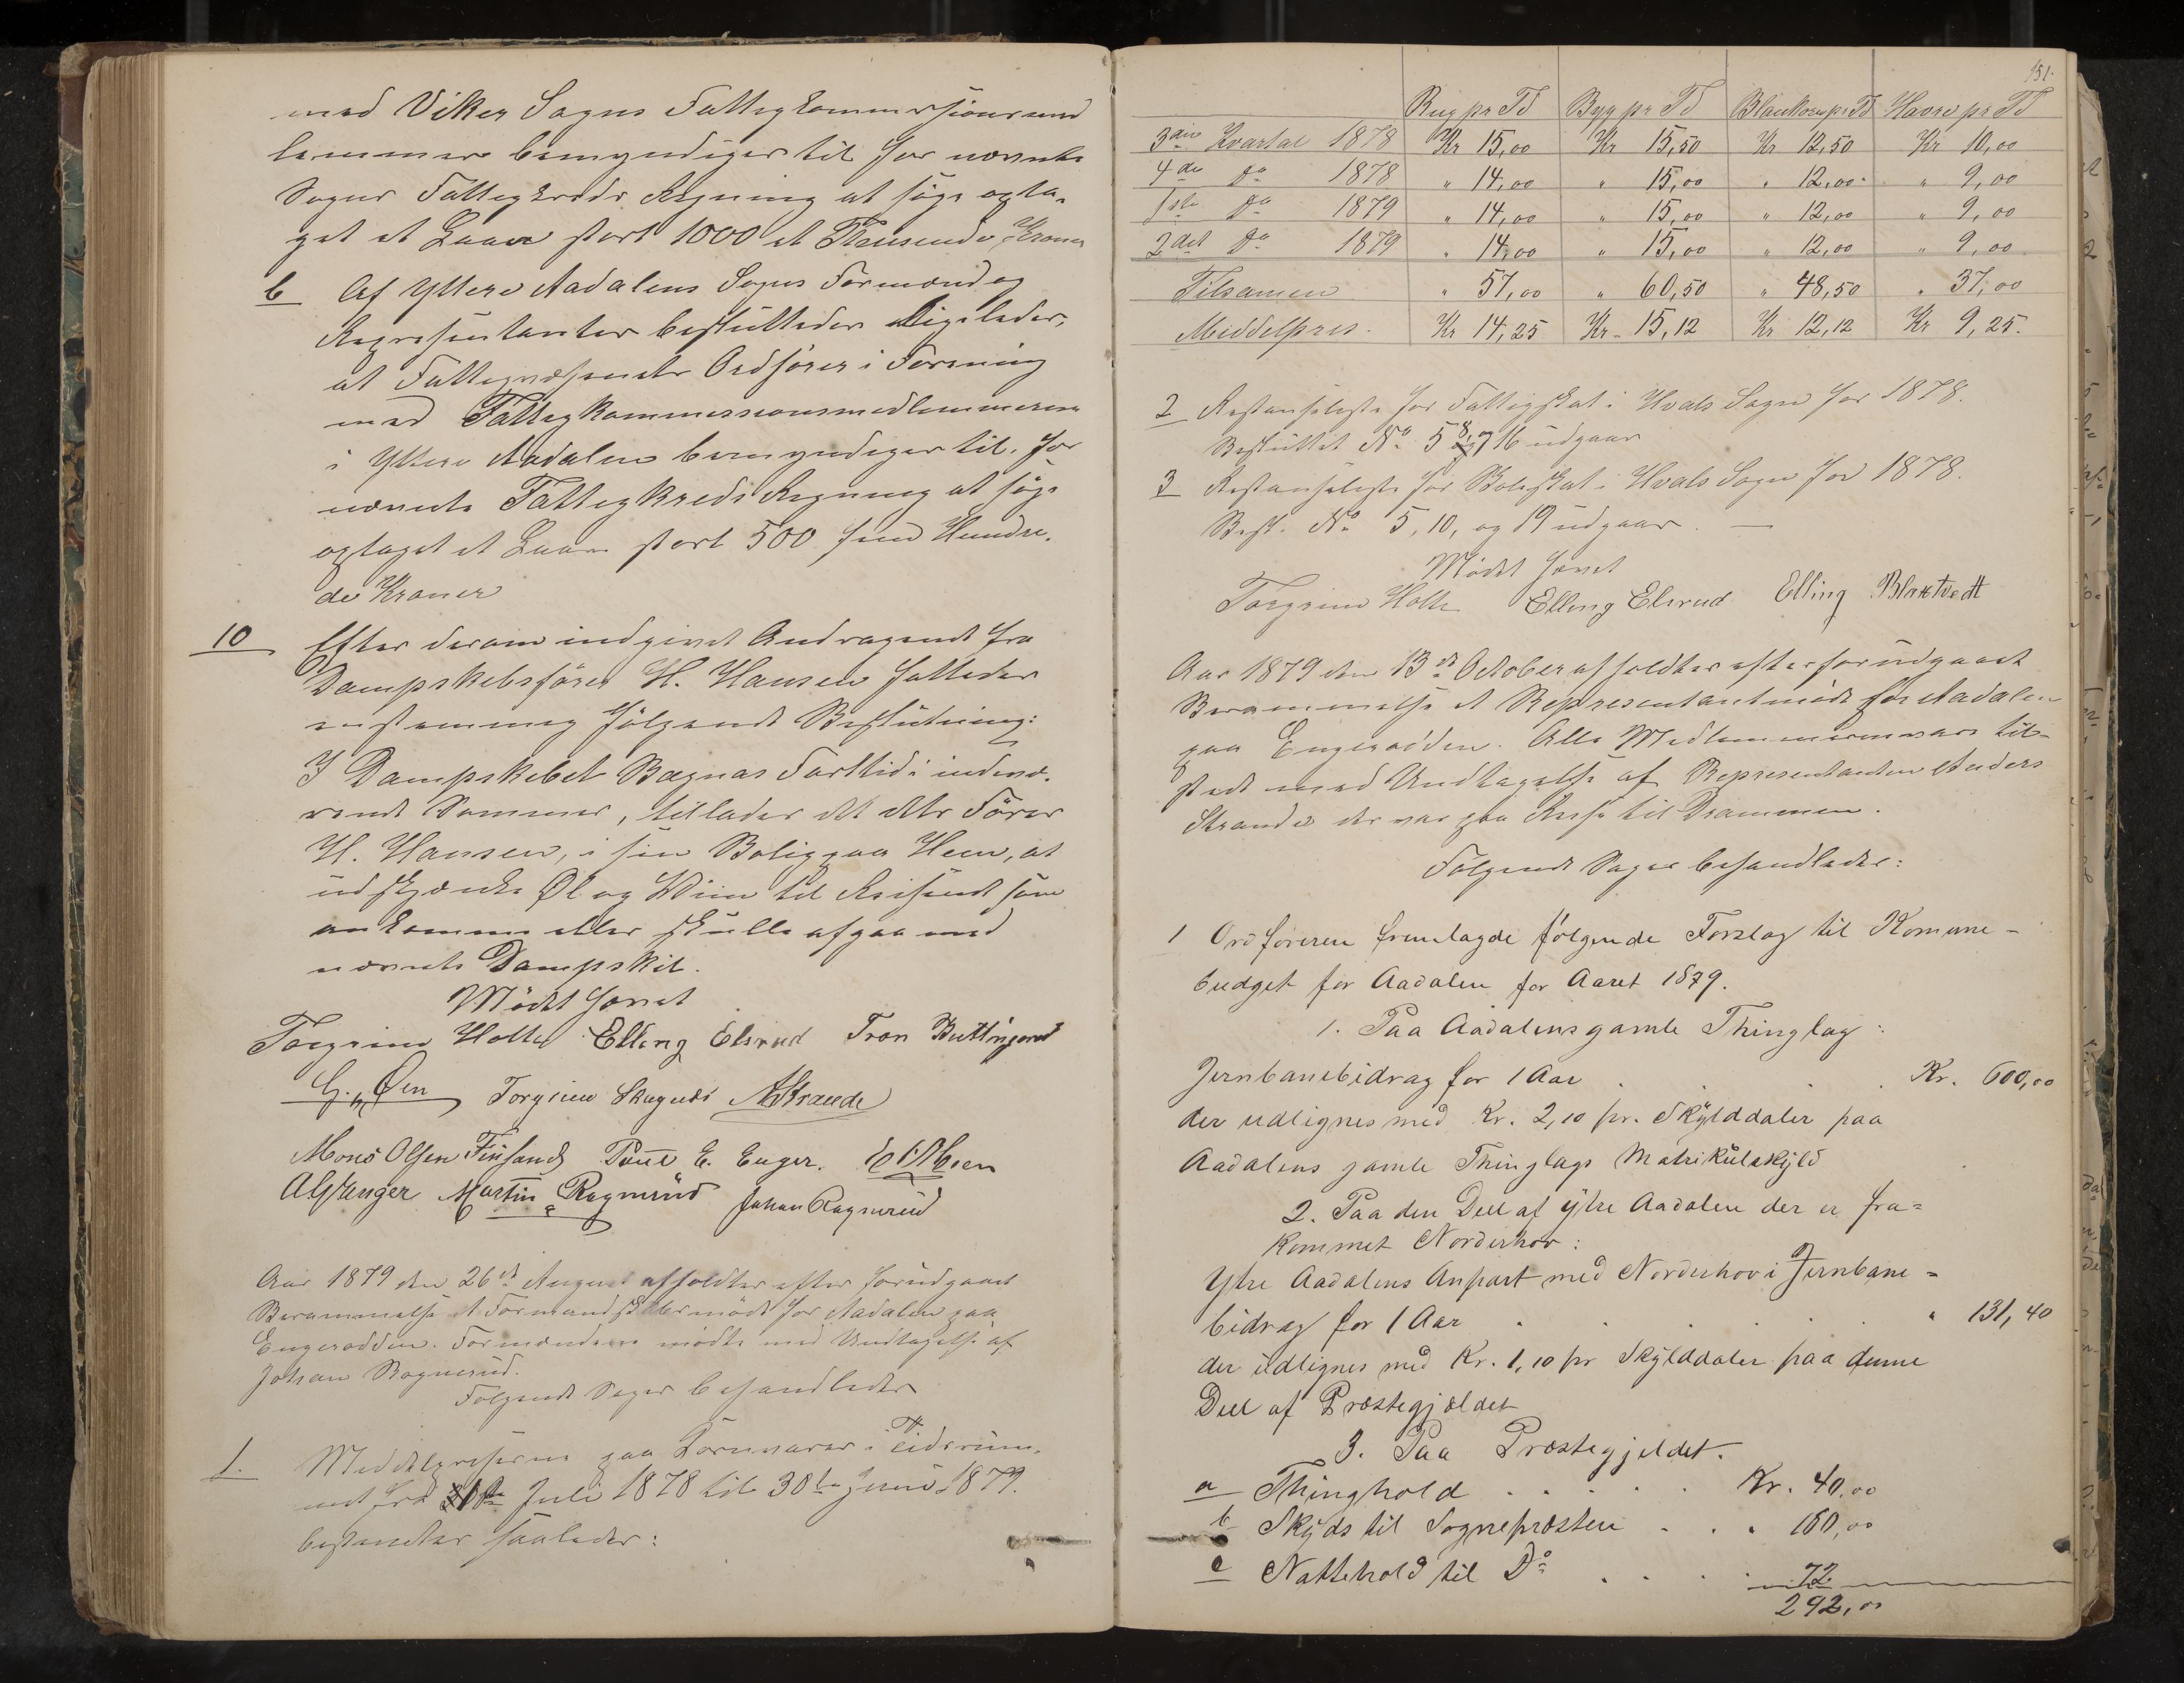 med Viker Sogns Fattigkommissionsmed
lemmer bemyndiges til for nævnte
Sogns Fattigkreds Regning at søge opta-
get et Laan stort 1000 et Thusende Kroner
b Af Ytere Aadalens Sogns Formænd og
Repræsentanter besluttedes ligeledes,
at Fattigvæsenets Ordfører i Forening
med Fattigkommissionsmedlemmerne
i Ytere Aadalen bemyndiges til, for
nævnte Fattigkreds Regning at søge
optaget et Laan stort 500 fem Hundre-
de Kroner
10 Efter derom indgivet Andragende fra
Dampskibsfører H. Hansen fattedes
enstemmig følgende Beslutning:
I Dampskibet Bægnas Farttid i indevæ-
rende Sommer, tillades det dets Fører
H. Hansen, i sin Bolig paa Heen, at
udskjænke Øl og Viin til Reisende som
ankomme eller skulle afgaa med
nævnte Dampskib.
Mødet hævet
Torgrim Holte Elling Elsrud Tron Buttingsrud
G. Øen Torgrim Skagnæs AStrande
Mons Olsen Finsand Poul E. Enger.
Martin Ragnrud Johan Ragnerud
Aar 1879 den 26de August afholdtes efter forudgaaet
Berammelse et Formandskabsmøde for Aadalen paa
Engerodden. Formændene mødte med Undtagelse af
Johan Ragnerud.
Følgende Sager behandledes
1. Middelpriserne paa Kornvarer i Tidsrum-
met fra 1ste Juli 1878 til 30te Juni 1879.
bestemtes saaledes:
151.
Rug pr Td Byg pr Td Blankorn pr Td Havre pr Td
3die Kvartal 1878 Kr 15,00 Kr 15,50 Kr 12,50 Kr 10,00
4de Do 1878 " 14,00 " 15,00 " 12,00 " 9,00
1ste Do 1879 " 14,00 " 15,00 " 12,00 " 9,00
2det Do 1879 " 14,00 " 15,00 " 12,00 " 9,00
Tilsamen " 57,00 " 60,50 " 48,50 " 37,00
Middelpris. Kr 14,25 Kr. 15,12 Kr 12,12 Kr 9,25.
2 Restanseliste for Fattigskat i Hvals Sogn for 1878.
Besluttet No 5 8, og 16 udgaar
3 Restanseliste for Skoleskat i Hvals Sogn for 1878.
Besl. No 5, 10, og 19 udgaar. —
Mødet hævet
Torgrim Holte Elling Elsrud Elling Blaktvedt
Aar 1879 den 13de October afholdtes efter forudgaaet
Berammelse et Repræsentantmøde for Aadalen
paa Engerodden. Alle Medlemmerne vare til-
stede med Undtagelse af Repræsentanten Anders
Strande der var paa Reise til Drammen.
Følgende Sager behandledes:
1 Ordføreren fremlagde følgende Forslag til Komune-
budget for Aadalen for Aaret 1879.
1. Paa Aadalens gamle Thinglag:
Jernbanebidrag for 1 Aar . . . Kr. 600,00
der udlignes med Kr. 2,10 pr. Skylddaler paa
Aadalens gamle Thinglags Matrikulskyld
2. Paa den Deel af ytre Aadalen der er fra=
kommet Norderhov:
Ytre Aadalens Anpart med Norderhov i Jernbane=
bidrag for 1 Aar . . . . . " 131,40
der udlignes med Kr. 1,10 pr Skylddaler paa denne
Deel af Præstegjeldet
3. Paa Præstegjeldet.
a Thinghold . . . . . Kr. 40,00
b Skyds til Sognepræsten . . . 180,00
c Nattehold til Do . . . . 72
292,00